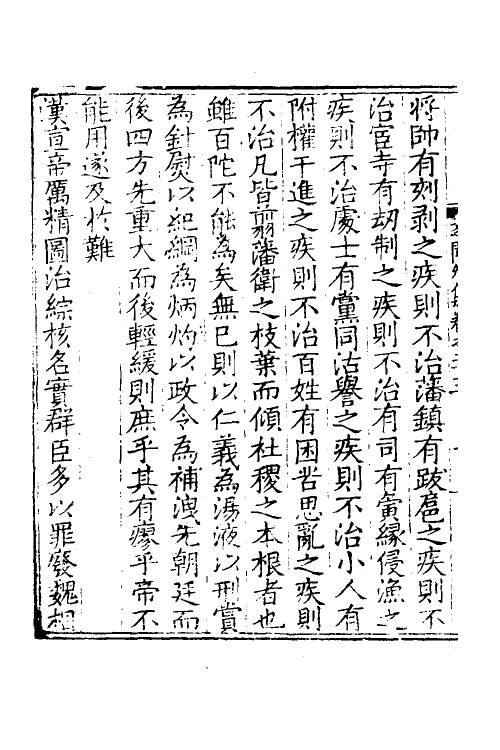 将帥有刻剥之疾則不治藩鎮有跋扈之疾則不
治宦寺有刼制之疾則不治有司有夤緣侵漁之
疾則不治處士有黨同沽譽之疾則不治小人有
附權干進之疾則不治百姓有困苦思亂之疾則
不治凡皆翦藩衛之枝葉而傾社稷之本根者也
雖百陀不能為矣無已則以仁義為湯液以刑賞
為針熨以紀綱為炳灼以政令為補洩先朝廷而
後四方先重大而後輕緩則庶乎其有瘳乎帝不
能用遂及於難
漢宣帝厲精圖治綜核名實群臣多以罪發魏相